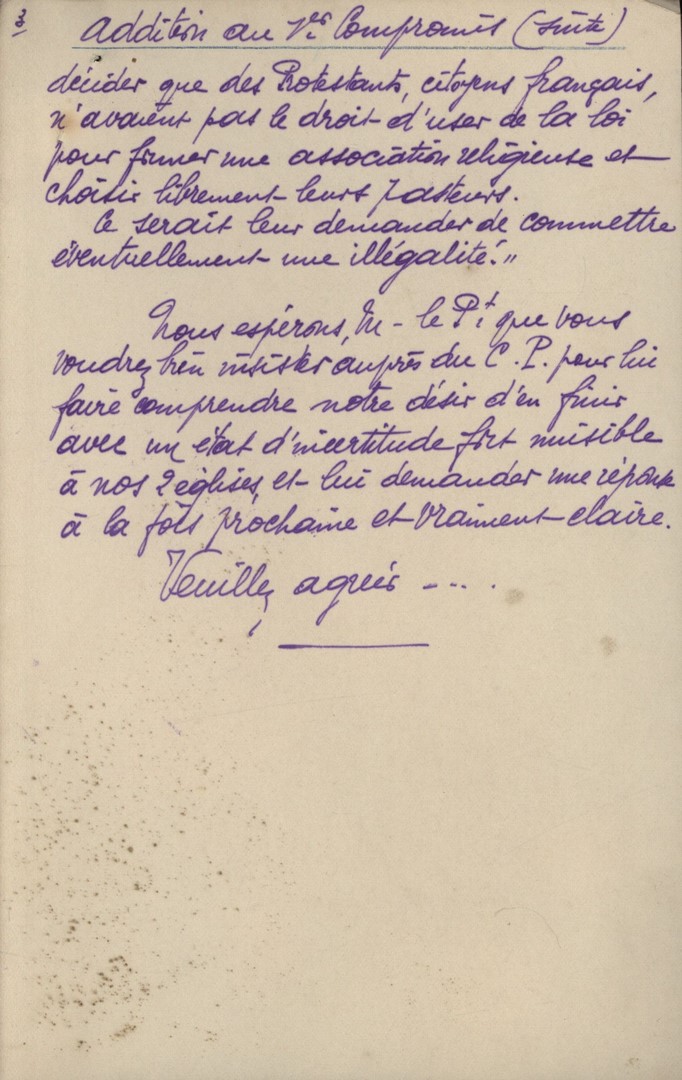 3
Addition au 1er Compromis (suite)
décider que des Protestants, citoyens français,
n'avaient pas le droit d'user de la loi
pour former une association religieuse et
choisir librement leurs Pasteurs.
Ce serait leur demander de commettre
éventuellement une illégalité."
Nous espérons, M - le Pt que vous
voudrez bien insister auprès du C. P. pour lui
faire comprendre notre désir d'en finir
avec un état d'incertitude fort nuisible
à nos 2 églises, et lui demander une réponse
à la fois prochaine et vraiment claire.
Veuillez agréer ----.